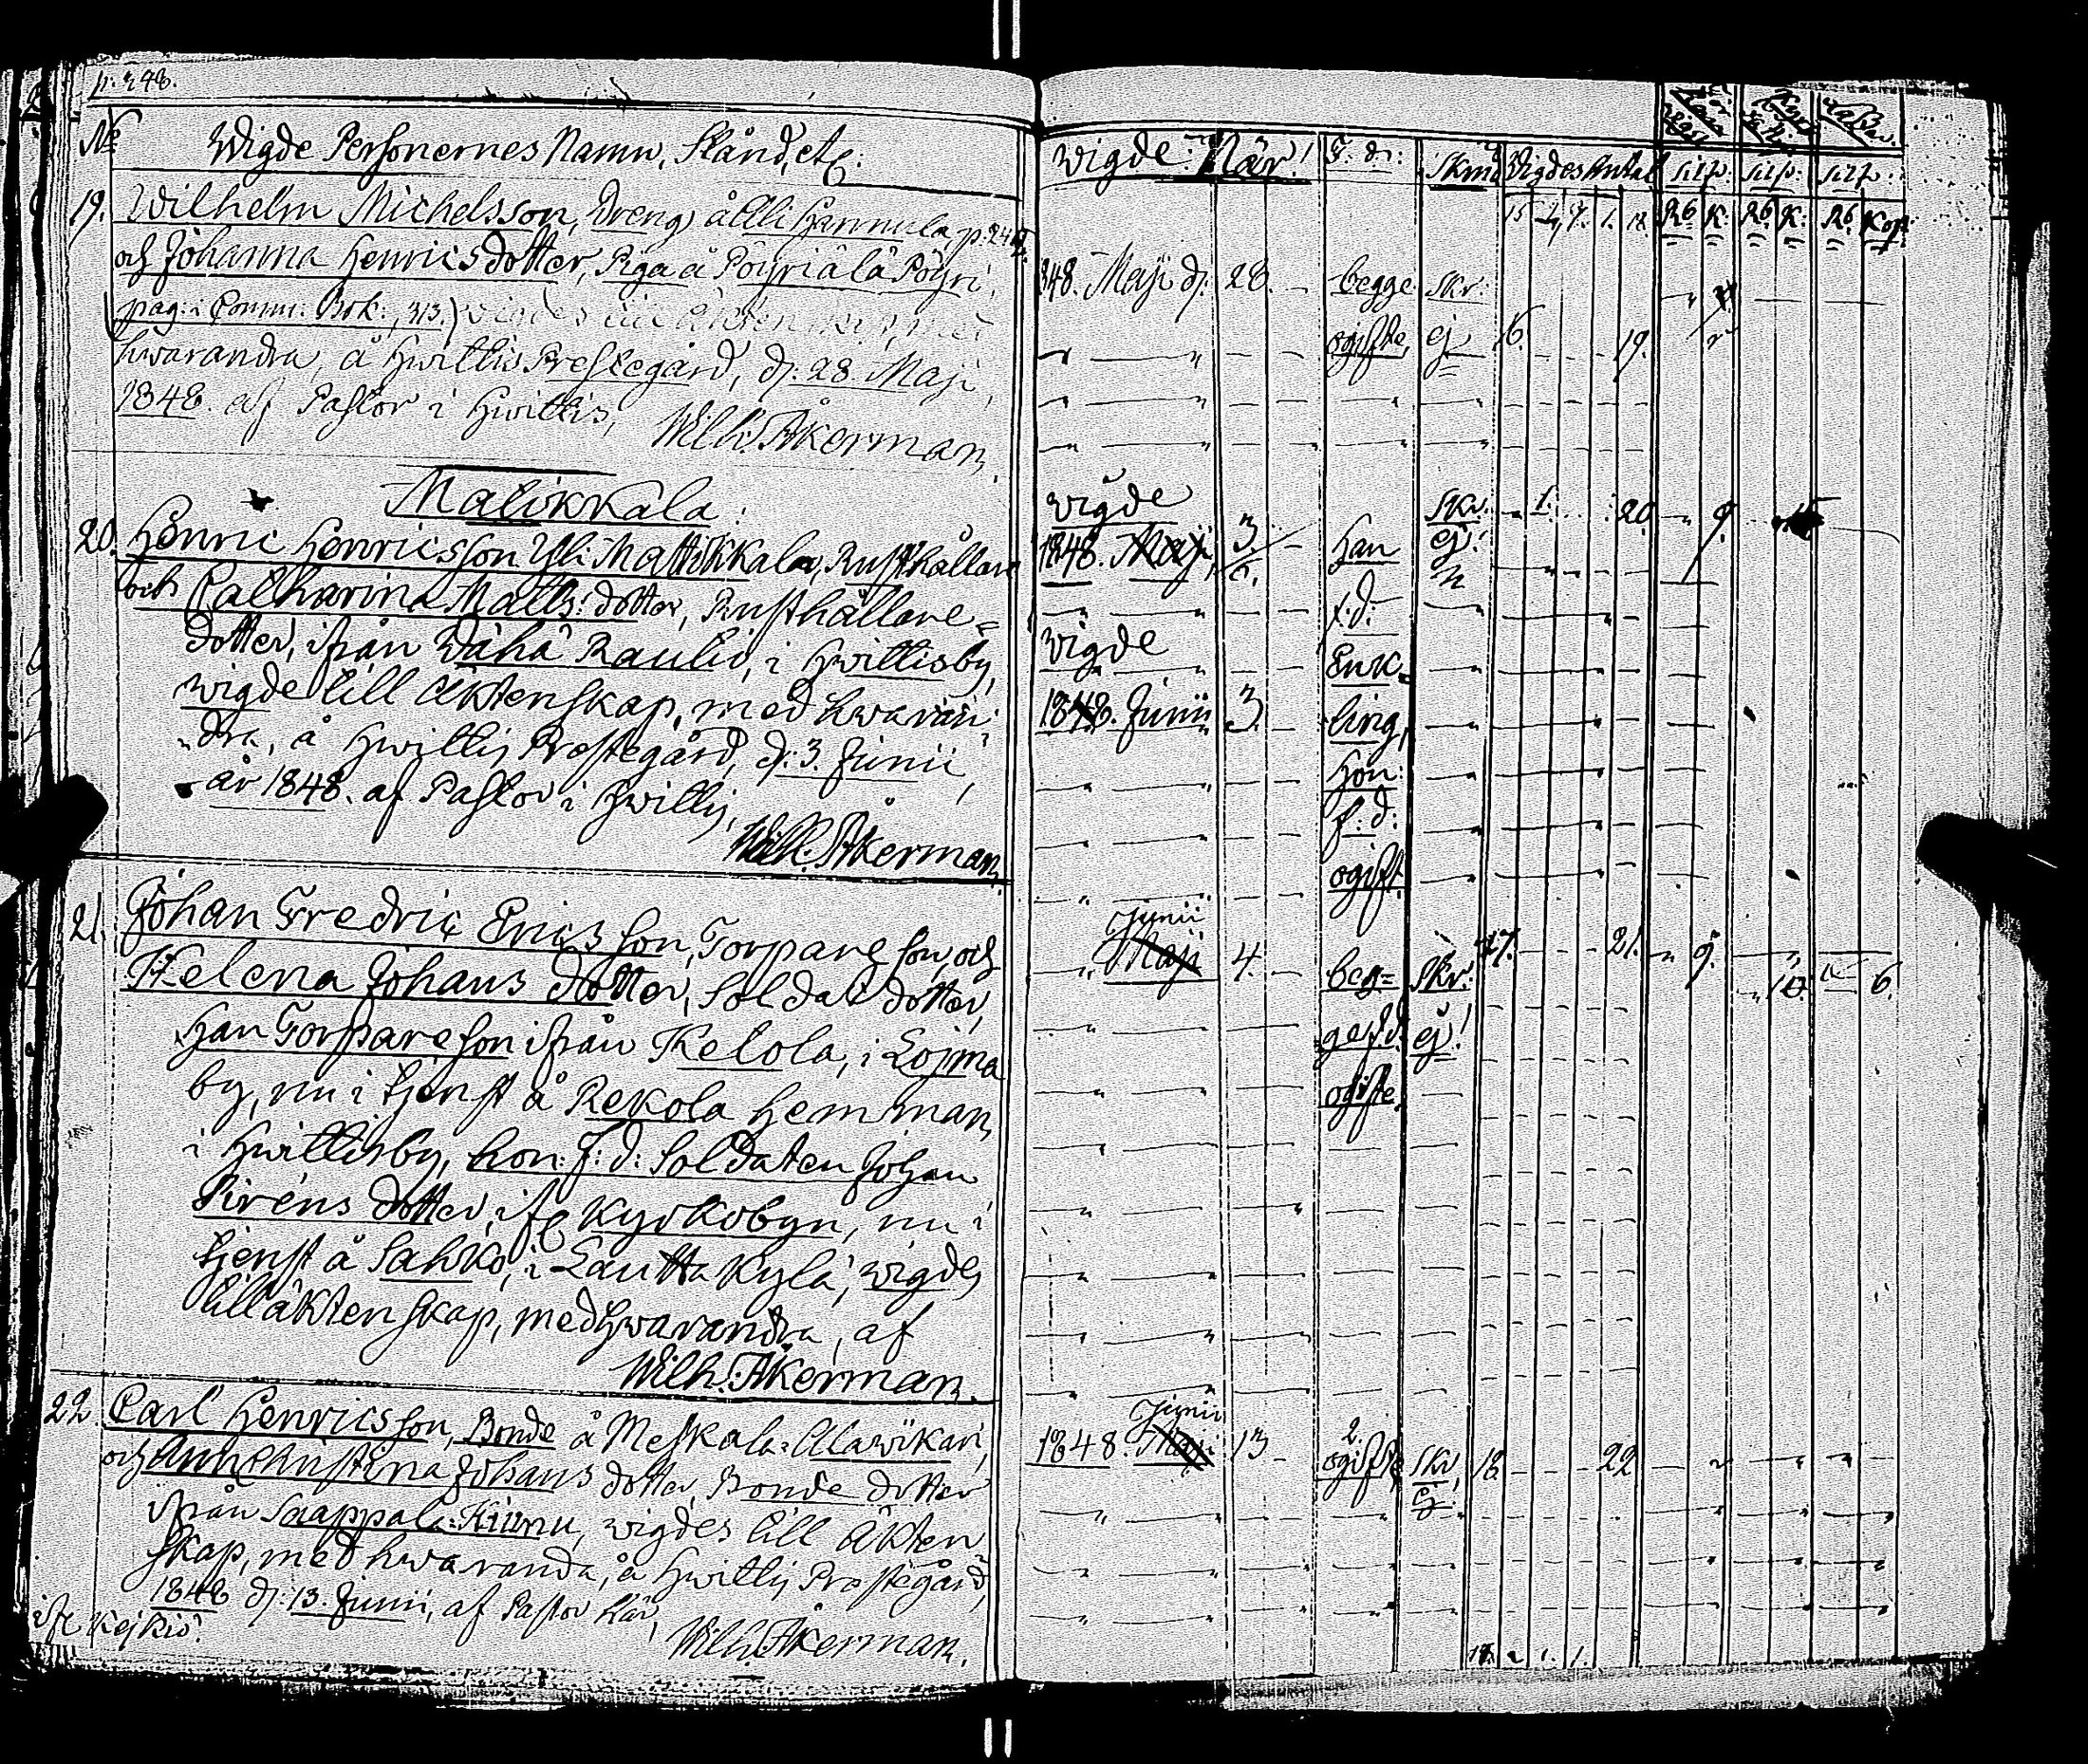 p. 248.
No Wigde Personernes Namn, Stånd, etc:
19. Wilhelm Michelsson, Dreng å Alli Hannula, p.
och Johanna Henricsdotter, Piga å Pöyriälä Pöyri,
pag: i Comm: Bok: 313.) wigdes till äktenskap, med
hwarandra, å Hwittis Prestegård, d: 28 Maji
1848. af Pastor i Hwittis,
Wilh. Åkerman,
Malikkala.
20. Henric Henricsson Yli Mattikkala, Rusthållare
och Catharina Matts: dotter, Rusthållare=
dotter, ifrån Wähä Raulio, i Hwittisby,
wigde till äktenskap, med hwaran¨
¨dra, å Hwittis Prestegård, d: 3. Junii,
år 1848. af Pastor i Hwittis,
Wilh. Åkerman,
21. Johan Fredric Ericsson, Torpare son, och
Helena Johans dotter, Soldat dotter,
Han Torpare son ifrån Kelola, i Loima
by, nu i tjenst å Rekola Hemman,
i Hwittisby, hon: f: d: Soldaten Johan
Piréns dotter, ifr Kyrkobyn, nu i
tjenst å Sahko, i Lautta Kylä, wigdes
till äktenskap, med hwarandra, af
Wilh. Åkerman.
22 Carl Henricsson, Bonde å Meskala: Alawikari,
och Anna Christina Johans dotter, Bonde dotter
ifrån Saappala: Kiimu, wigdes till äkten
skap, med hwaranda, å Hwittis Prestegård,
1848 d: 13. Junii, af Pastor här,
ifr Kejkiö.
Wilh. Åkerman.
Wigde: När! F: d: Skm Wigdes Antal
R6 K. R6 K: R6 Kop.
848. Maji d: 28. begge skr:
ogifte ej 16. 19.
wigde Skr. 1. 20 9.
1848. Maji, 3. Han ej!
f: d:
wigde Enk=
1848. Junii 3. ling,
Hon:
f: d:
ogift.
Junii
Maji 4. beg= Skr: 17. 21. 9. 10. 6.
ge f. d. ej!
ogifte.
Junii
1848. Maji 13 2. ogifte skr, 18 22
ej.
1. 1.